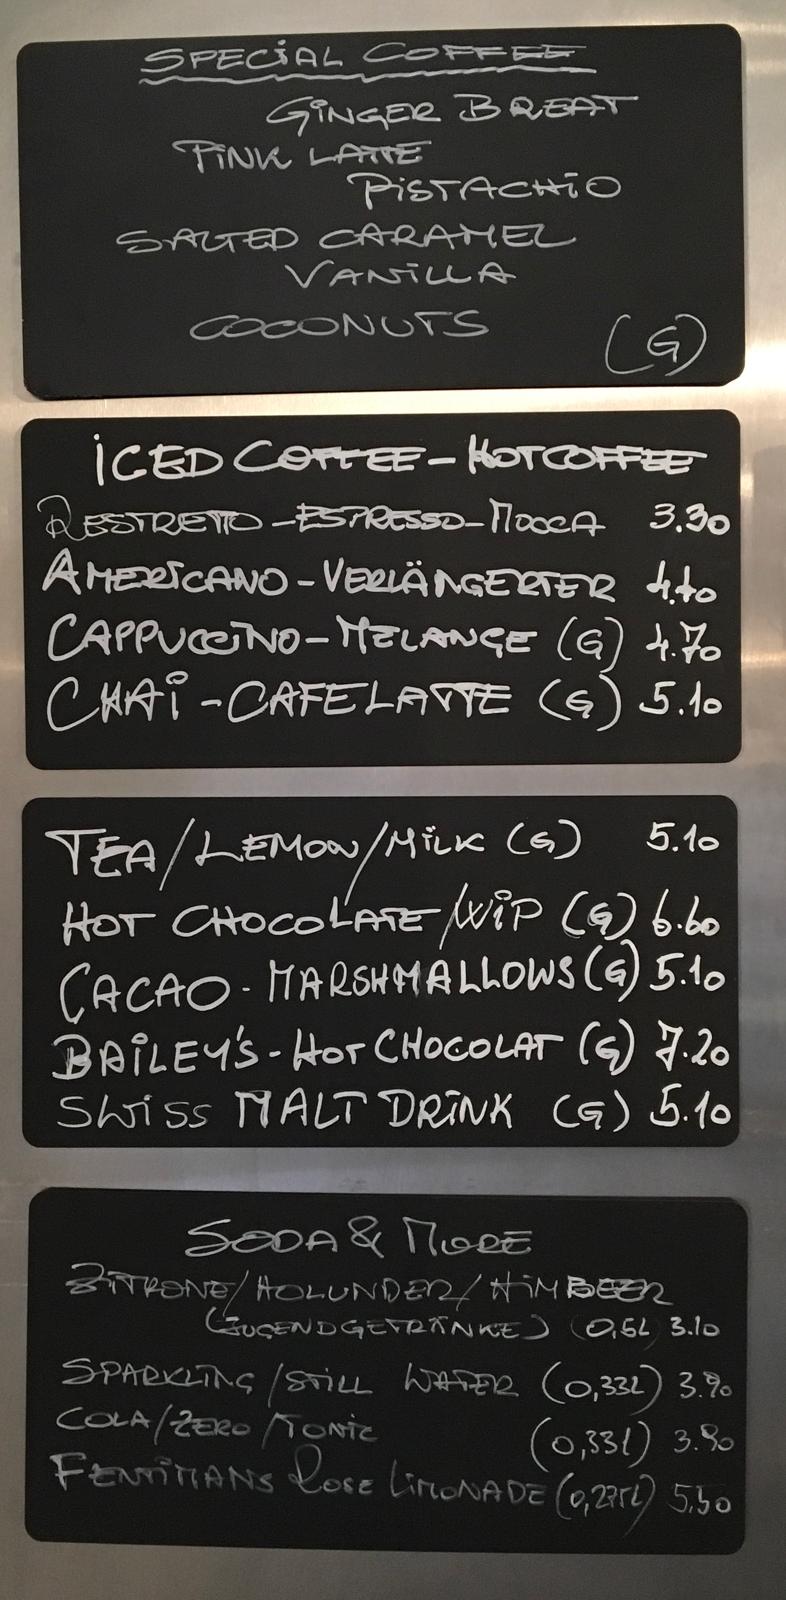 SPECIAL COFFEE
GINGER BREAT
PINK LATTE
PISTACHIO
SALTED CARAMEL
VANILLA
COCONUTS (G)
ICED COFFEE - HOT COFFEE
RESTRETTO - ESPRESSO - MOCCA 3.30
AMERICANO - VERLÄNGERTER 4.40
CAPPUCCINO - MELANGE (G) 4.70
CHAI - CAFE LATTE (G) 5.10
TEA/LEMON/MILK (G) 5.10
HOT CHOCOLATE/WIP (G) 6.60
CACAO - MARSHMALLOWS (G) 5.10
BAILEY'S - HOT CHOCOLAT (G) 7.20
SWISS MALT DRINK (G) 5.10
SODA & MORE
ZITRONE/HOLUNDER/HIMBEER
(JUGENDGETRÄNKE) (0,5L) 3.10
SPARKLING/STILL WATER (0,33L) 3.90
COLA/ZERO/TONIC (0,33l) 3.90
FENTIMANS ROSE LIMONADE (0,275L) 5.50